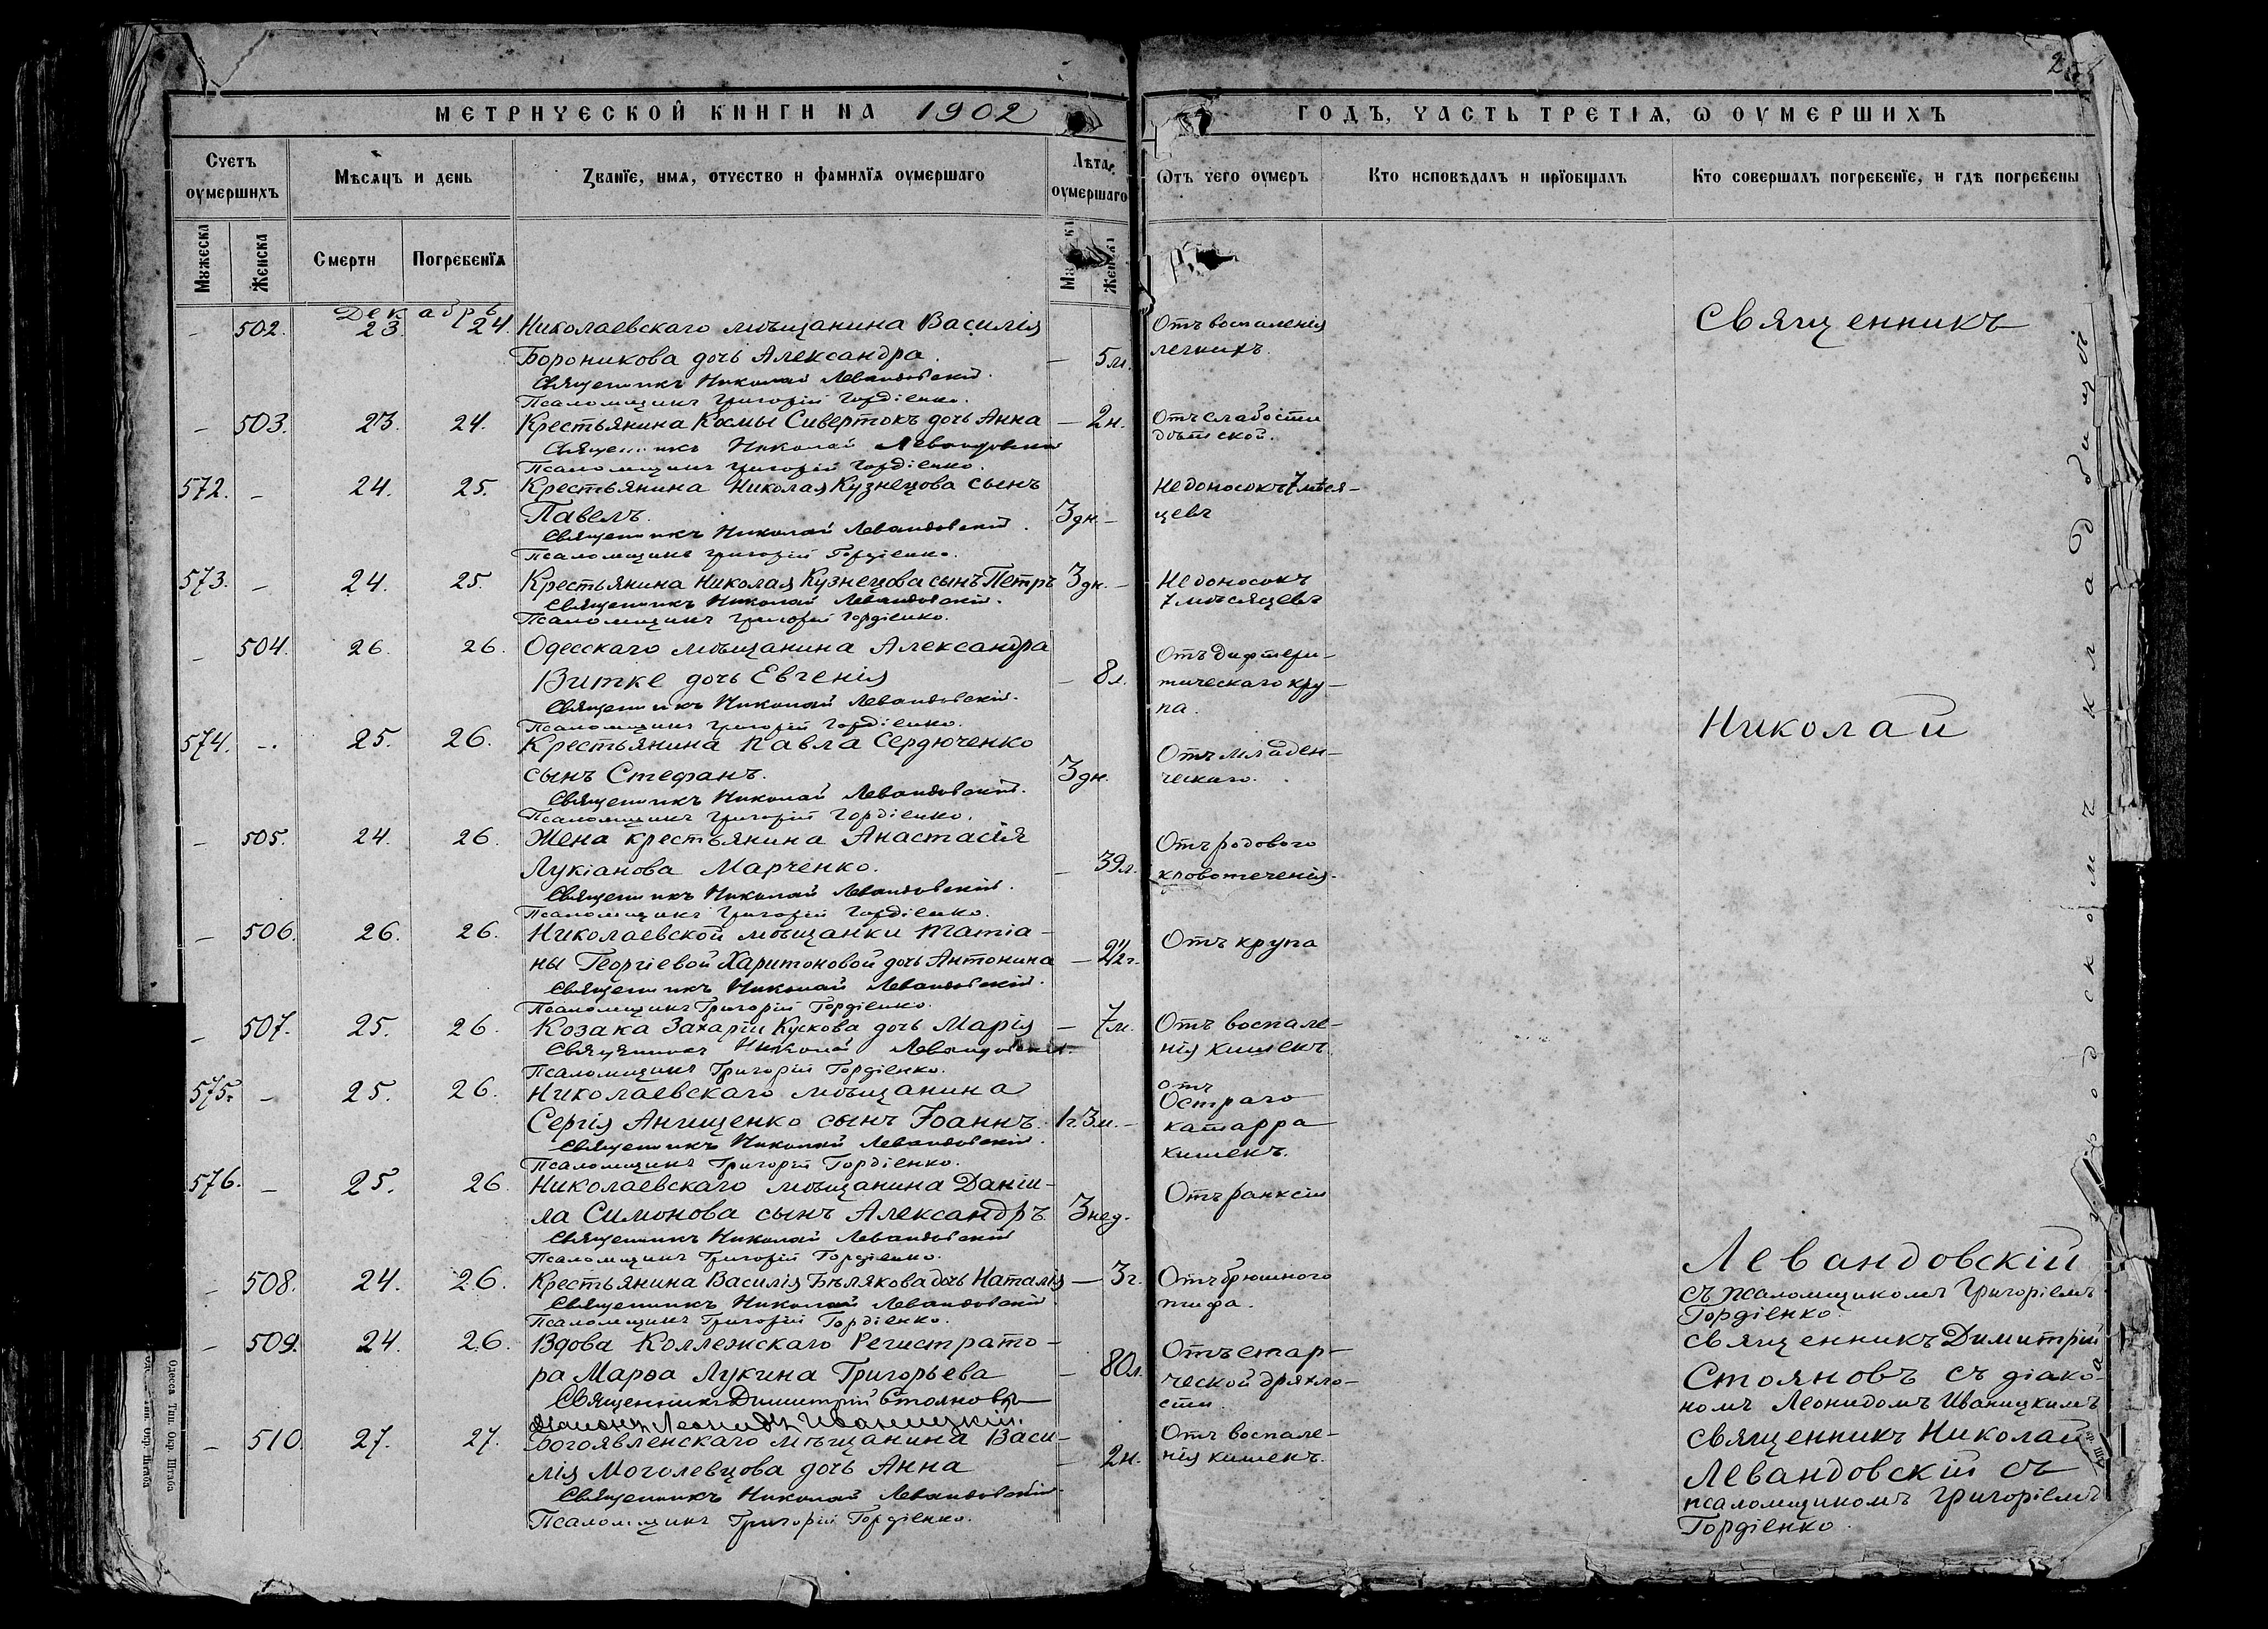 МЕТРИЧЕСКОЙ КНИГИ НА 1902
ГОДЪ, ЧАСТЬ ТРЕТІѦ, Ѡ ОУМЕРШИХЪ
Счетъ оумершихъ
Мѣсяцъ и день
Званїе, имѧ, отчество и фамилїѧ оумершаго
Лѣта оумершаго
Ѿтъ чего оумеръ
Кто исповѣдалъ и прїобщалъ
Кто совершалъ погребенїе, и гдѣ погребены
Мꙋжеска
Женска
Смерти
Погребенїѧ
Женска
Декабрь
502. 23. 24. Николаевскаго мѣщанина Василія
Отъ воспаленія
Бороникова дочь Александра. 5 м.
легкихъ.
Священникъ Николай Левандовскій.
Псаломщикъ Григорій Гордіенко.
503. 23. 24. Крестьянина Космы Сивертокъ дочь Анна 2 н.
Отъ слабости
дѣтской.
Священникъ Николай Левандовскій
Псаломщикъ Григорій Гордіенко.
572. 24. 25. Крестьянина Николая Кузнецова сынъ
Недоносокъ 7 мѣся-
Павелъ. 3 дн.
цевъ
Священникъ Николай Левандовскій.
Псаломщикъ Григорій Гордіенко.
573. 24. 25. Крестьянина Николая Кузнецова сынъ Петръ 3 дн.
Недоносокъ
7 мѣсяцевъ
Священникъ Николай Левандовскій.
Псаломщикъ Григорій Гордіенко.
504. 26. 26. Одесскаго мѣщанина Александра
Отъ дифтери-
Витке дочь Евгенія 8 л.
тическаго кру-
па.
Священникъ Николай Левандовскій.
Псаломщикъ Григорій Гордіенко.
574. 25. 26. Крестьянина Павла Сердюченко
Отъ младен-
сынъ Стефанъ. 3 дн.
ческаго.
Священникъ Николай Левандовскій.
Псаломщикъ Григорій Гордіенко.
505. 24. 26. Жена крестьянина Анастасія
Отъ родового
Лукіанова Марченко. 39 л.
кровотеченія.
Священникъ Николай Левандовскій.
Псаломщикъ Григорій Гордіенко.
506. 26. 26. Николаевской мѣщанки Татіа-
Отъ крупа
ны Георгіевой Харитоновой дочь Антонина 2 1/2 г.
Священникъ Николай Левандовскій.
Псаломщикъ Григорій Гордіенко.
507. 25. 26. Козака Захаріи Кускова дочь Марія 7 м.
Отъ воспале-
нія кишекъ.
Священникъ Николай Левандовскій.
Псаломщикъ Григорій Гордіенко.
575. 25. 26. Николаевскаго мѣщанина
отъ
Остраго
Сергія Анищенко сынъ Іоаннъ. 1 г. 3 м.
катарра
кишекъ.
Священникъ Николай Левандовскій.
Псаломщикъ Григорій Гордіенко.
576. 25. 26. Николаевскаго мѣщанина Даніи-
ла Симонова сынъ Александръ. 3 нед.
Священникъ Николай Левандовскій
Псаломщикъ Григорій Гордіенко.
508. 24. 26. Крестьянина Василія Бѣлякова дочь Наталія 3 г.
Отъ брюшного
тифа.
Священникъ Николай Левандовскій
Псаломщикъ Григорій Гордіенко.
509. 24. 26. Вдова Коллежскаго Регистрато-
Отъ стар-
ра Марѳа Лукина Григорьева 80 л.
ческой дряхло-
сти
Священникъ Димитрій Стояновъ
Діаконъ Леонидъ Иваницкій.
510. 27. 27. Богоявленскаго мѣщанина Васи-
Отъ воспале-
лія Моголевцова дочь Анна 2 н.
нія кишекъ.
Священникъ Николай Левандовскій
Псаломщикъ Григорій Гордіенко.
Священникъ
Николай
Левандовскій
съ псаломщикомъ Григоріемъ
Гордіенко.
Священникъ Димитрій
Стояновъ съ діако-
номъ Леонидомъ Иваницкимъ
Священникъ Николай
Левандовскій съ
псаломщикомъ Григоріемъ
Гордіенко.
городскомъ кладбищѣ
Одесса Тип. Окр. Штаба